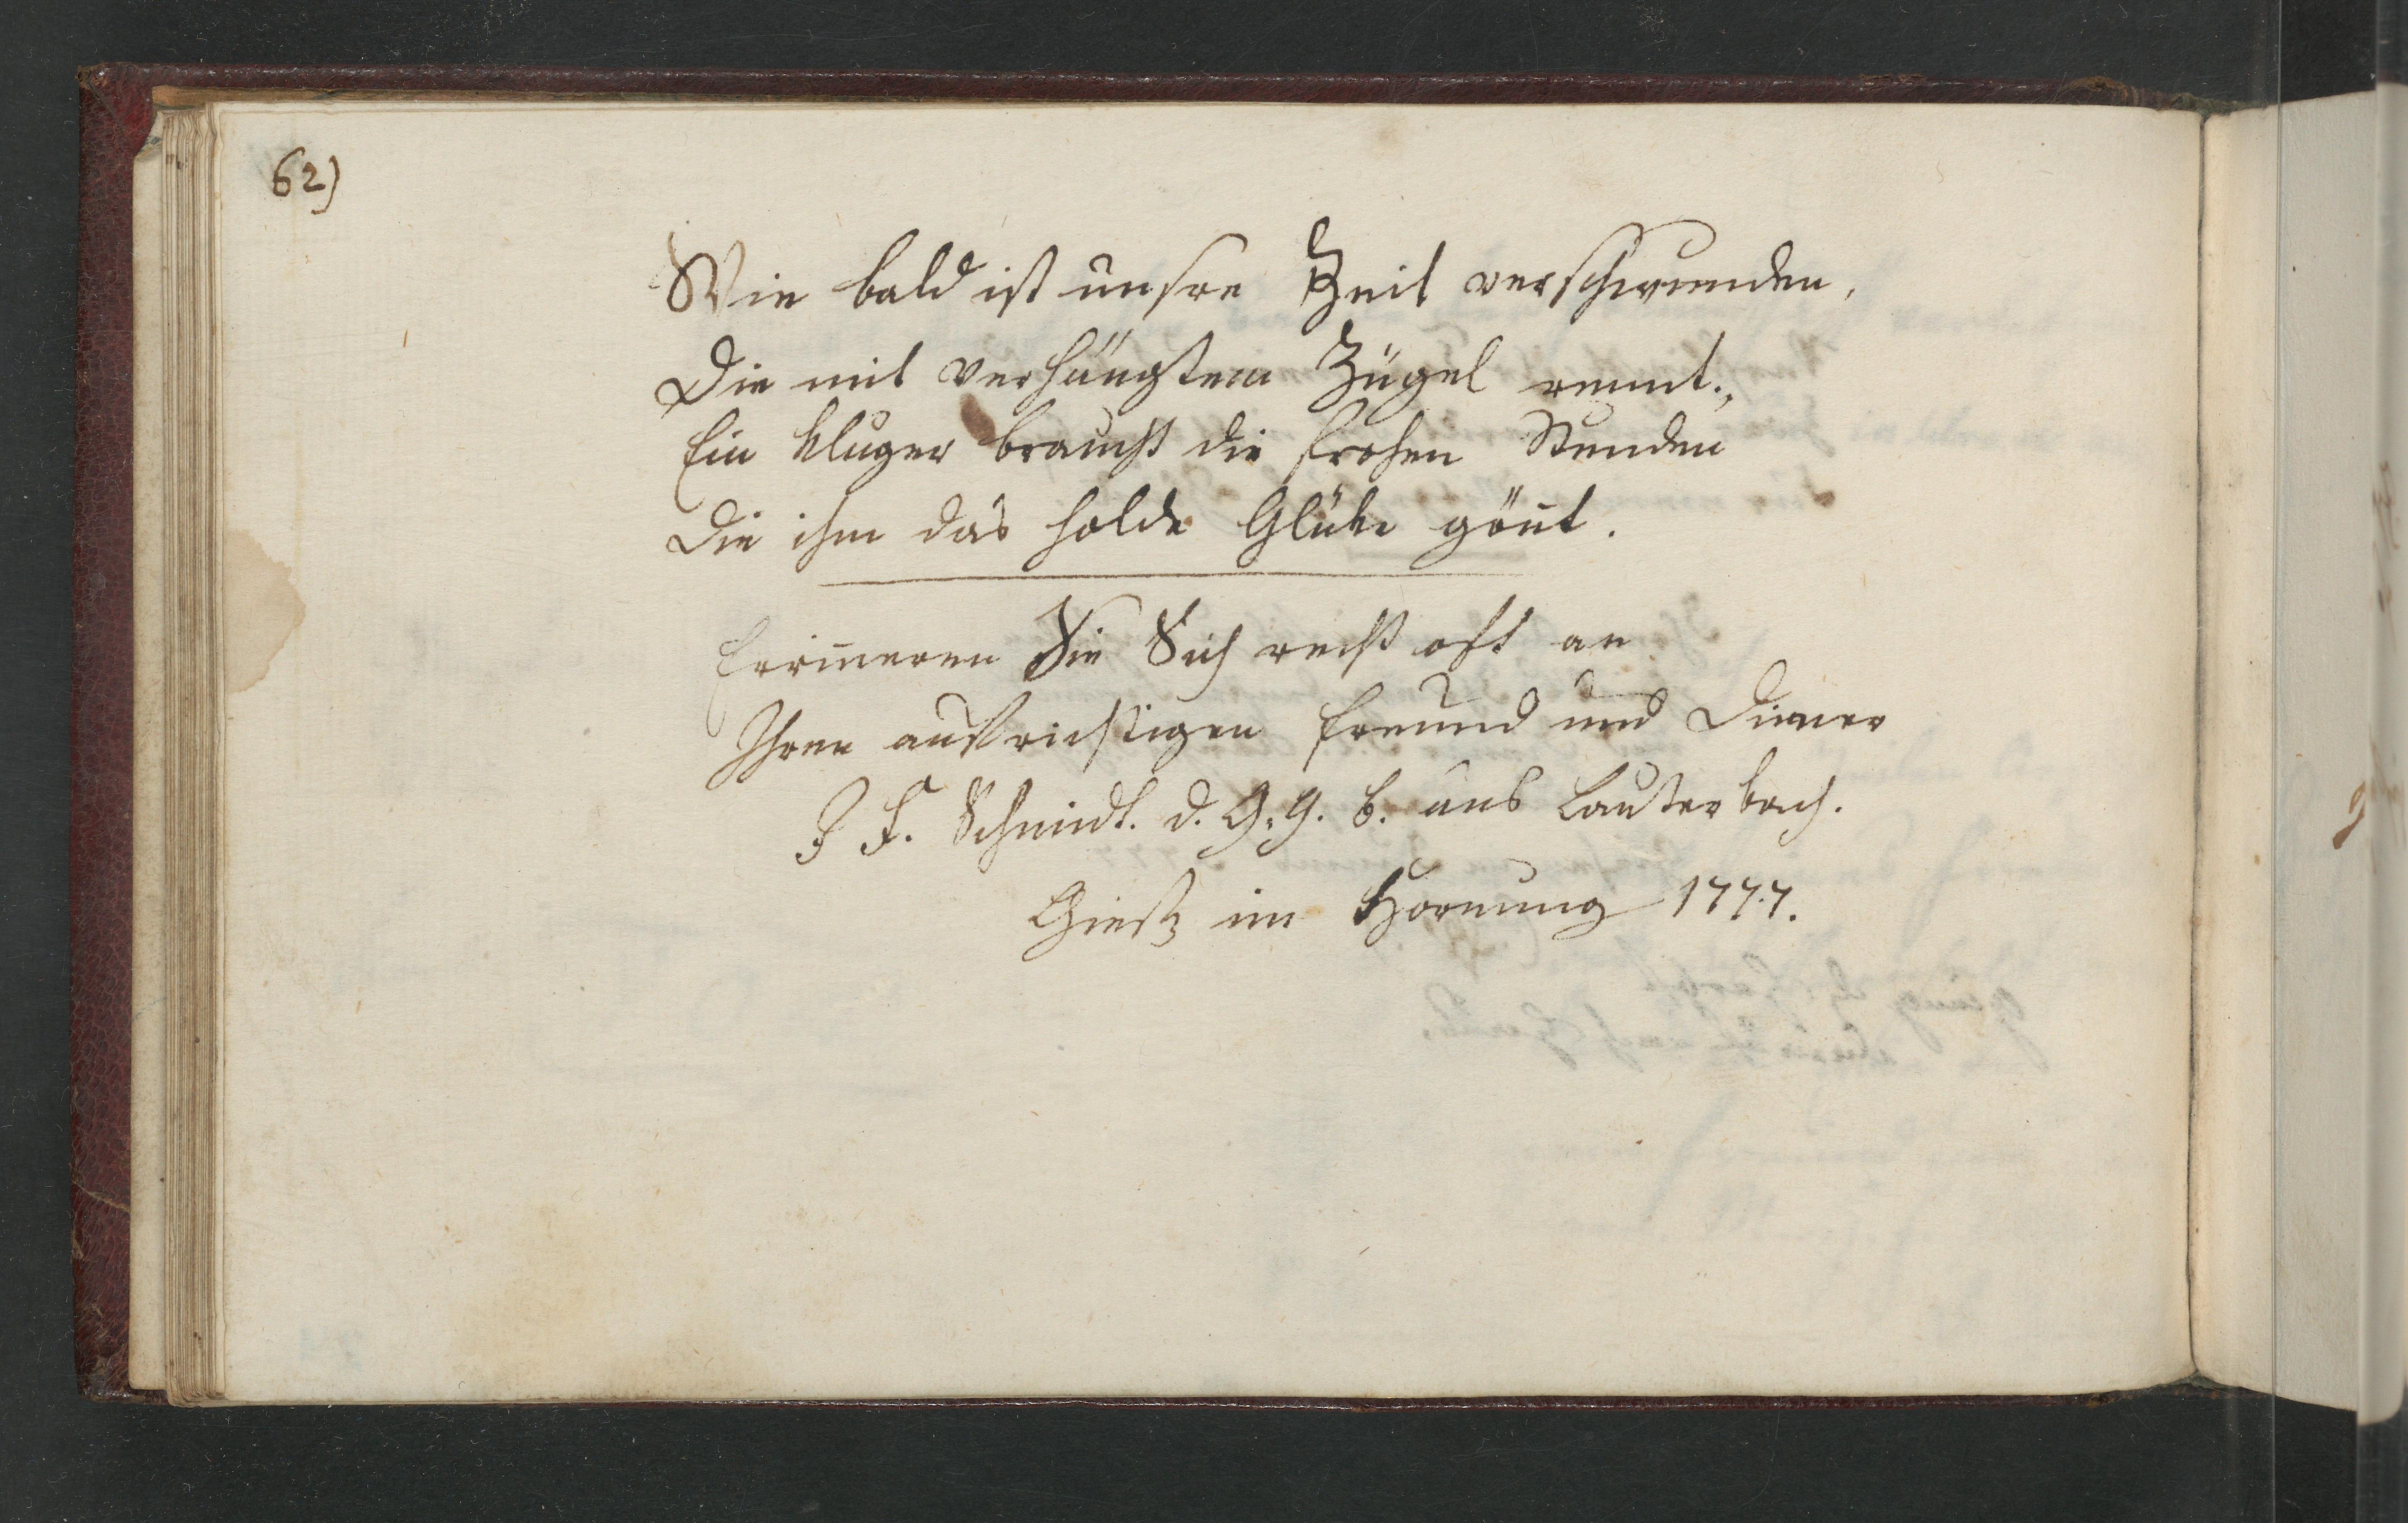 62)
Wie bald ist unsre Zeit verschwunden,
Die mit verhängtem Zügel rennt.,
Ein kluger braucht die frohen Stunden
Die ihm das holde Glüke gön̄t.
Erin̄eren Sie Sich recht oft an
Ihren aufrichtigen freund und Diener
J F. Schmidt. d. G. G. b. aus Lauterbach.
Giesz im Hornung 1777.